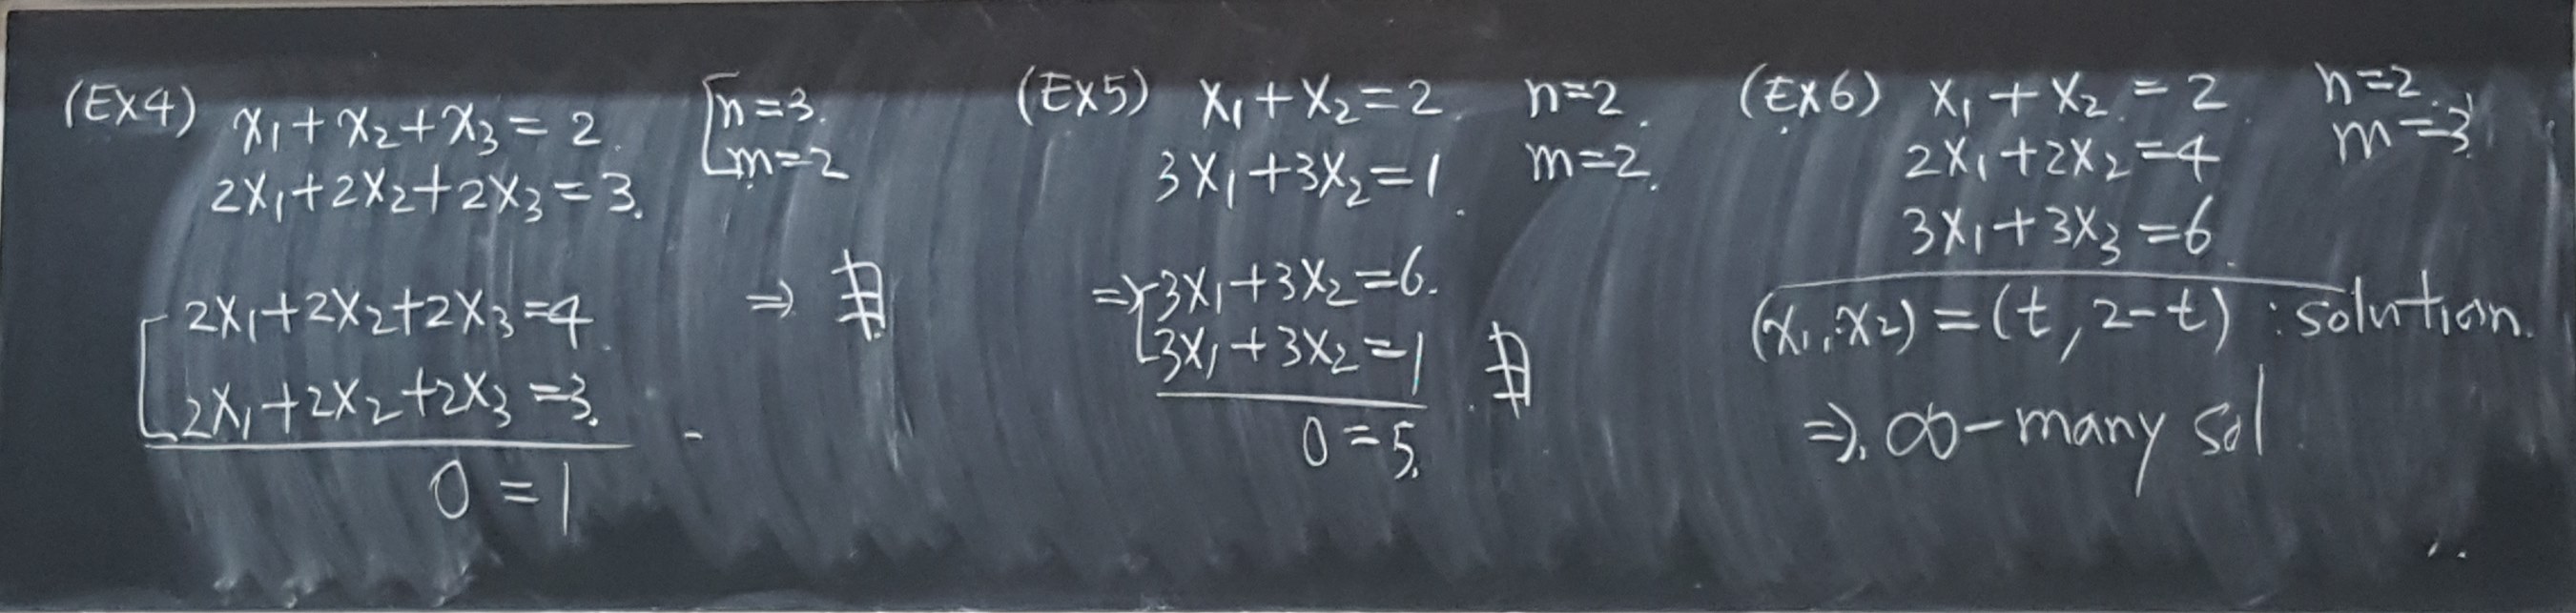 (Ex4) x₁+x₂+x₃=2.
2x₁+2x₂+2x₃=3.
n=3.
m=2
2x₁+2x₂+2x₃=4
2x₁+2x₂+2x₃=3.
0=1
⇒ ∄
(Ex5) x₁+x₂=2. n=2.
3x₁+3x₂=1. m=2.
⇒ 3x₁+3x₂=6.
3x₁+3x₂=1
0=5.
∄
(Ex6) x₁+x₂=2. n=2.
2x₁+2x₂=4 m=3
3x₁+3x₃=6.
(x₁,x₂)=(t,2-t) : solution.
⇒. ∞-many sol